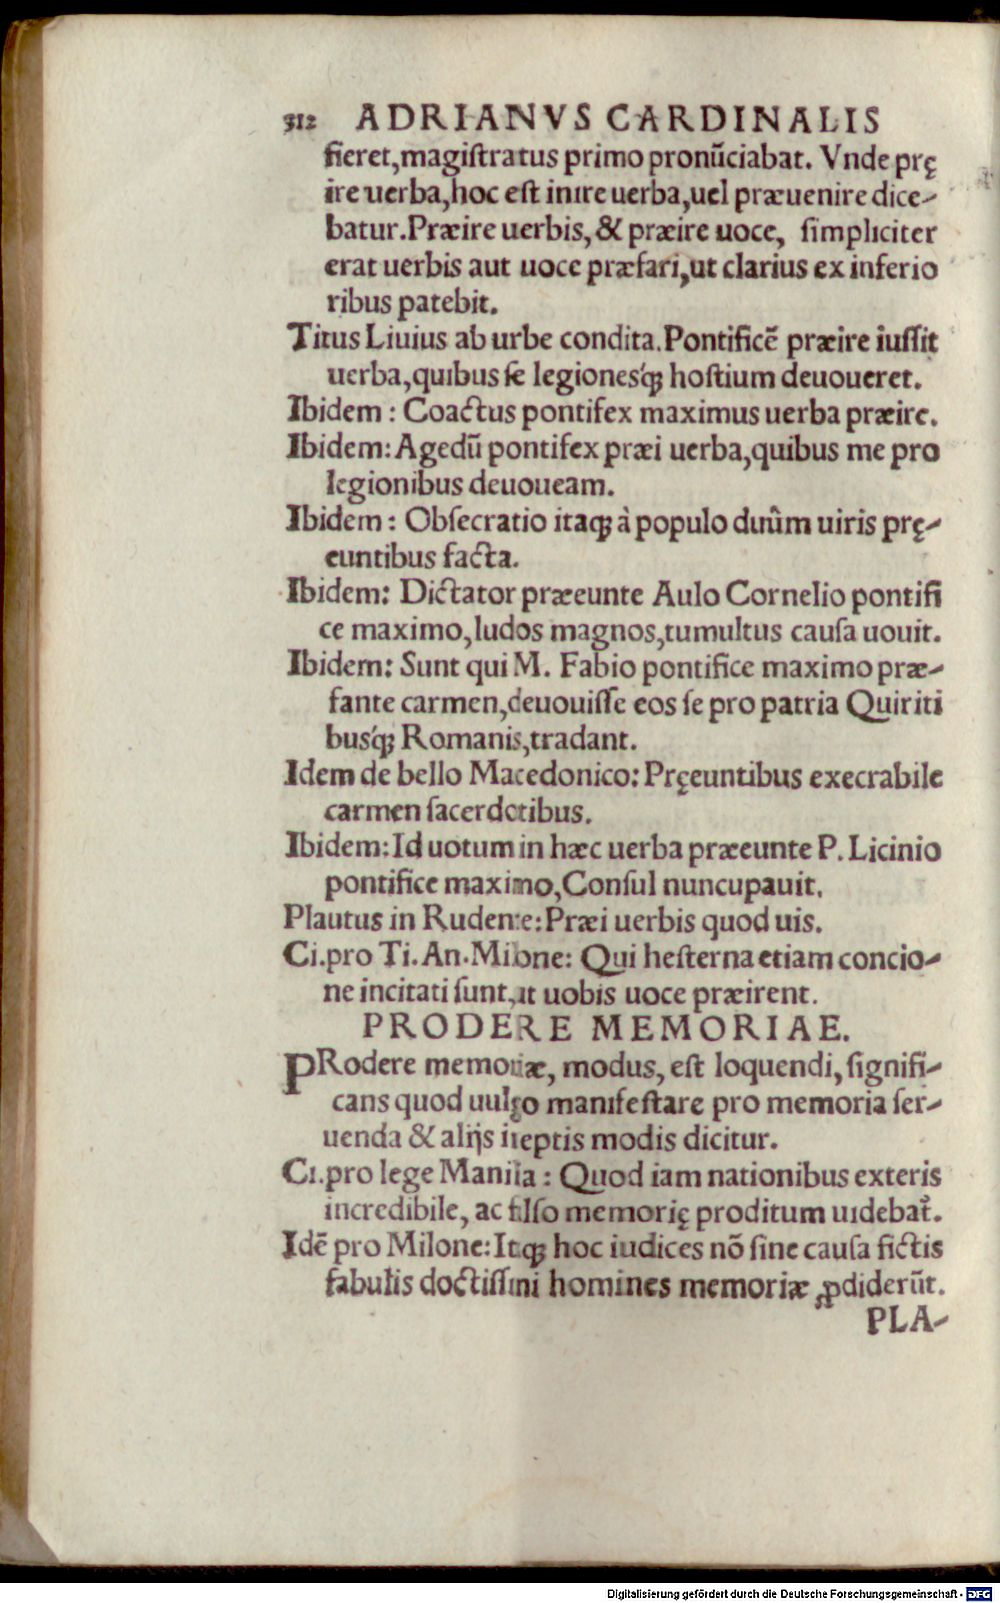 312 ADRIANVS CARDINALIS
fieret,magiſtratus primo pronũciabat. Vnde prę
ire uerba,hoc eſt inire uerba,uel præuenire dice-
batur.Præire uerbis, & præire uoce, ſimpliciter
erat uerbis aut uoce præfari,ut clarius ex inferio
ribus patebit.
Titus Liuius ab urbe condita.Pontificẽ præire iuſſit
uerba,quibus ſe legionesq́ꝫ hoſtium deuoueret.
Ibidem: Coactus pontifex maximus uerba præire.
Ibidem: Agedũ pontifex præi uerba,quibus me pro
legionibus deuoueam.
Ibidem: Obſecratio itaqꝫ à populo duûm uiris prę-
euntibus facta.
Ibidem: Dictator præeunte Aulo Cornelio pontifi
ce maximo,ludos magnos,tumultus cauſa uouit.
Ibidem: Sunt qui M. Fabio pontifice maximo præ-
fante carmen,deuouiſſe eos ſe pro patria Quiriti
busq́ꝫ Romanis,tradant.
Idem de bello Macedonico: Pręeuntibus execrabile
carmen ſacerdotibus.
Ibidem: Id uotum in hæc uerba præeunte P. Licinio
pontifice maximo,Conſul nuncupauit.
Plautus in Rudente: Præi uerbis quod uis.
Ci.pro Ti. An. Milone: Qui heſterna etiam concio-
ne incitati ſunt,ut uobis uoce præirent.
PRODERE MEMORIAE.
PRodere memoriæ, modus, eſt loquendi, ſignifi-
cans quod uulgo manifeſtare pro memoria ſer-
uenda & alijs ineptis modis dicitur.
Ci.pro lege Manilia: Quod iam nationibus exteris
incredibile, ac falſo memorię proditum uidebat᷑.
Idẽ pro Milone: Itaqꝫ hoc iudices nõ ſine cauſa fictis
fabulis doctiſſimi homines memoriæ ꝓdiderũt.
PLA-
Digitalisierung gefördert durch die Deutsche Forschungsgemeinschaft - DFG